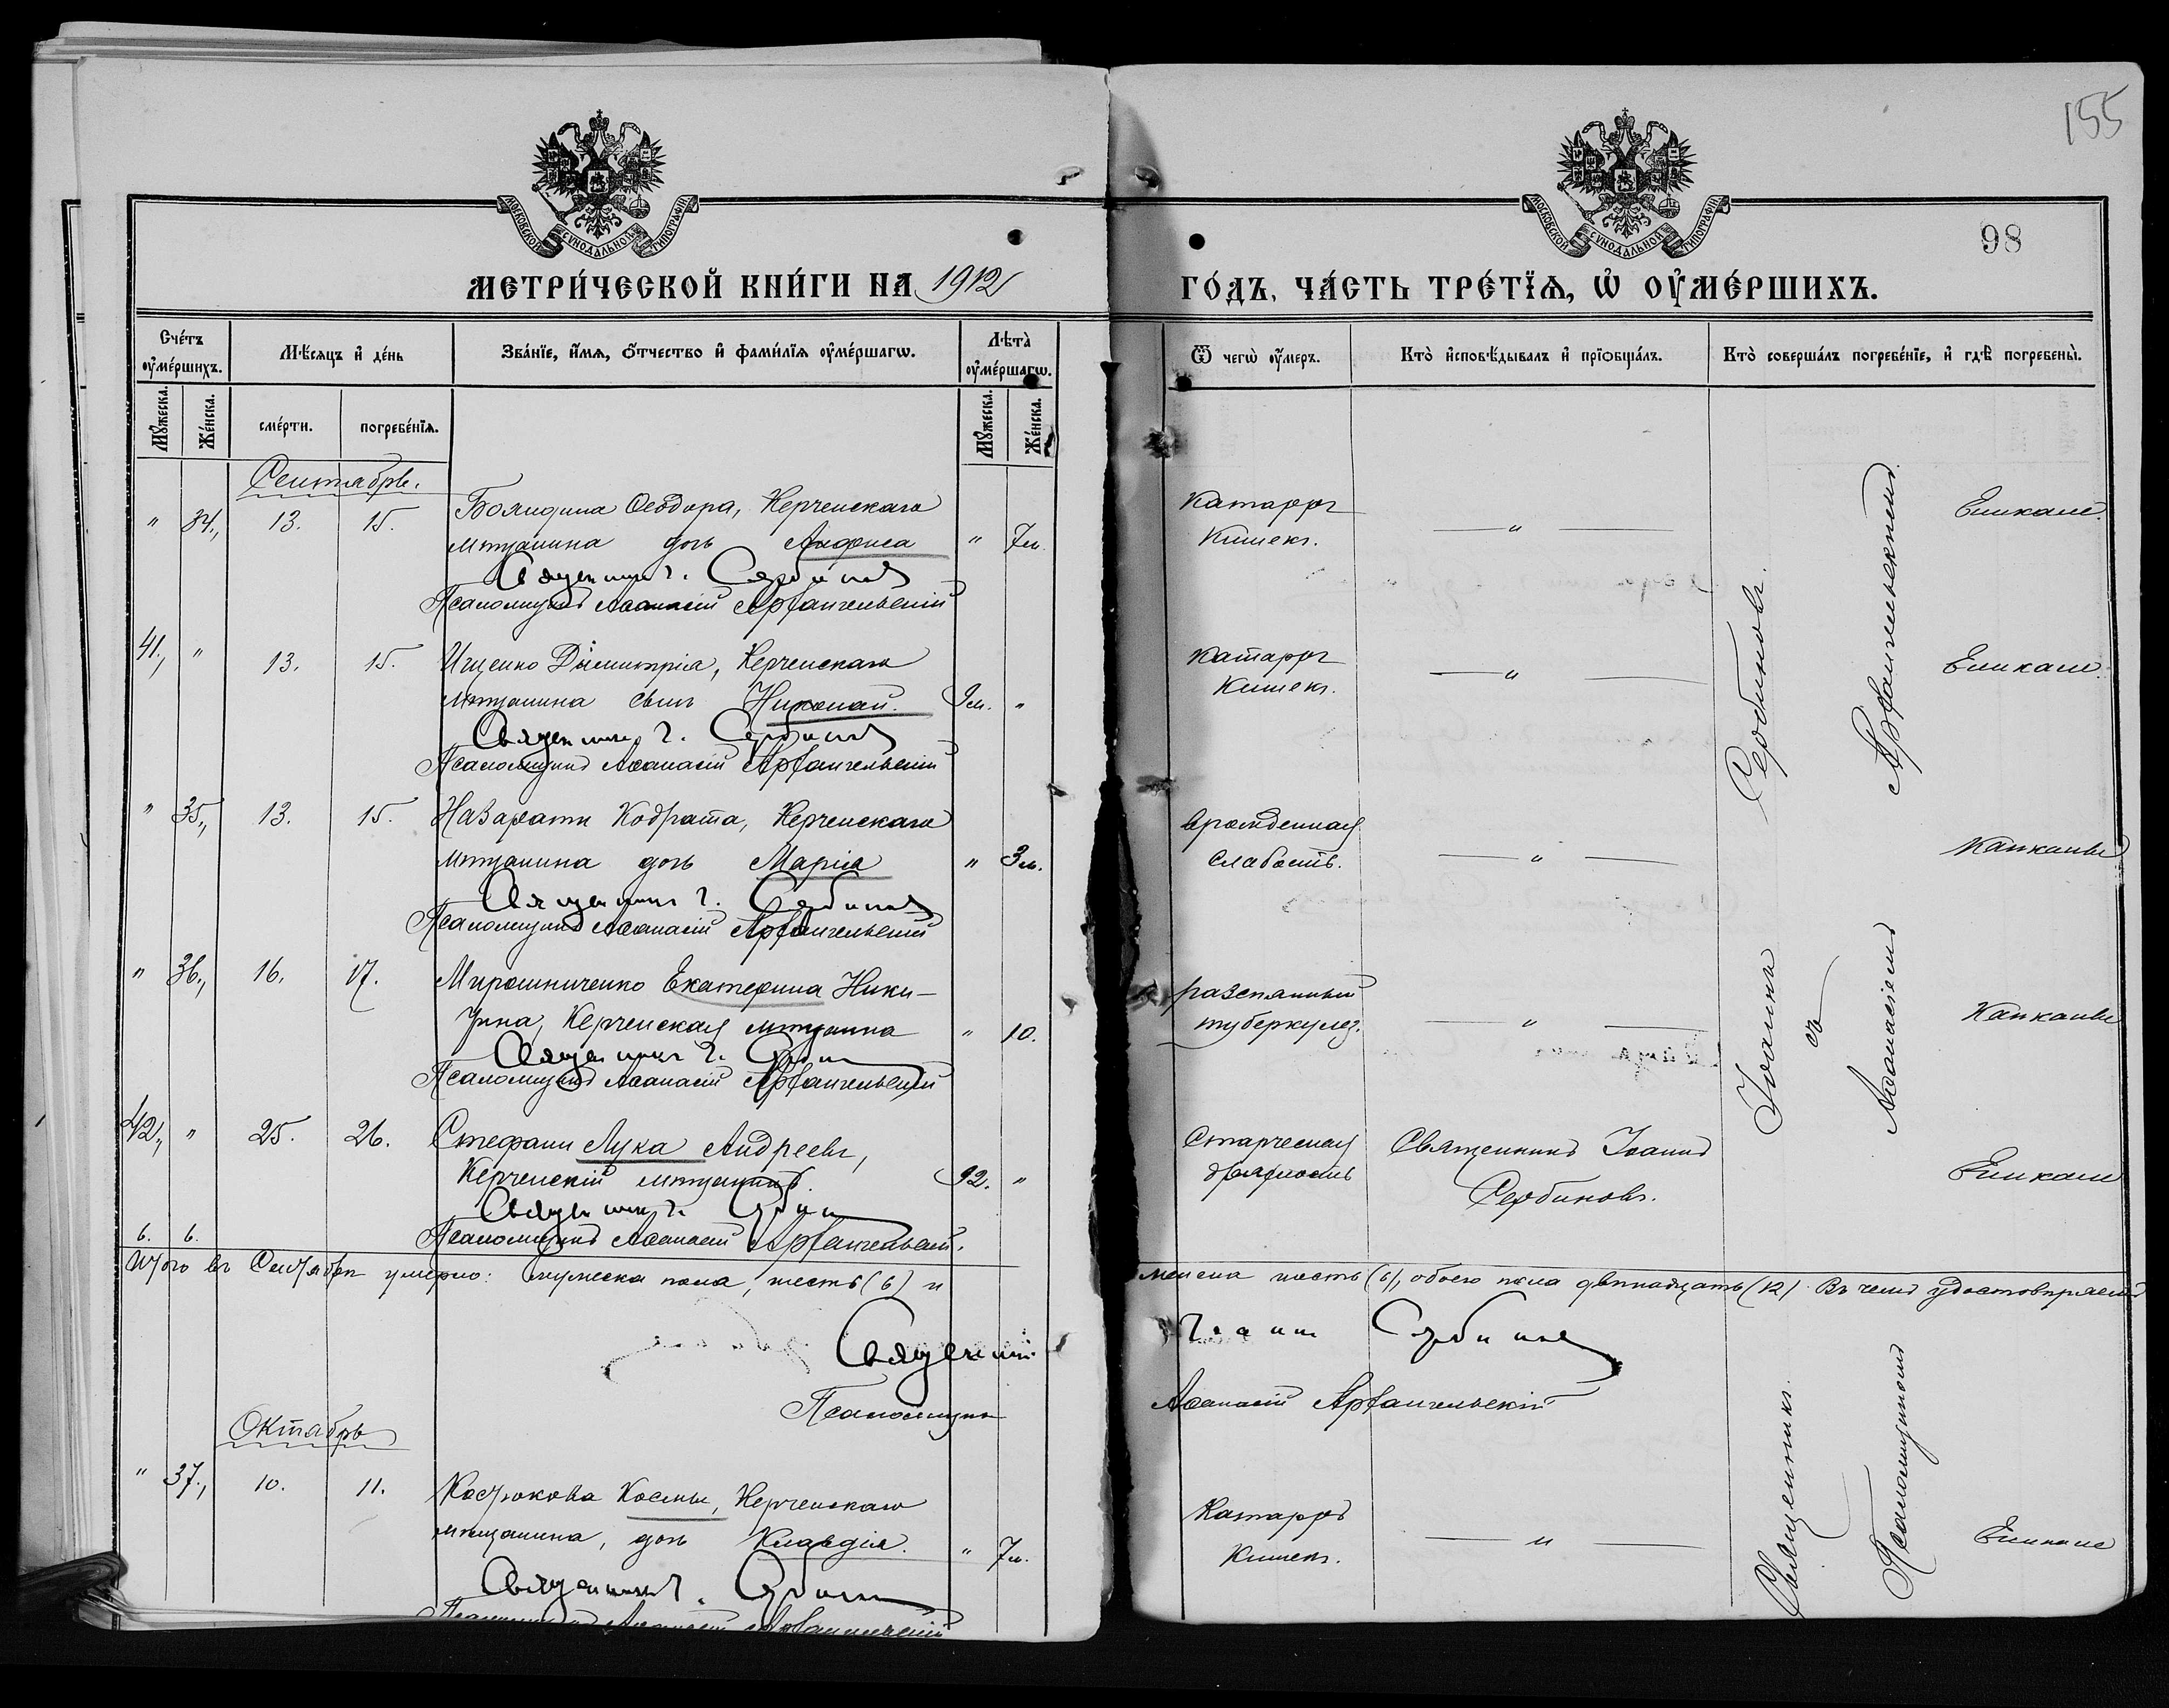 155
МОСКОВСКОЙ СѴНОДАЛЬНОЙ ТИПОГРАФІИ
МОСКОВСКОЙ СѴНОДАЛЬНОЙ ТИПОГРАФІИ
98
МЕТРИ́ЧЕСКОЙ КНИ́ГИ НА 1912
ГО́ДЪ, ЧА́СТЬ ТРЕ́ТЇѦ, Ѡ ОУ҆МЕ́РШИХЪ.
Сче́тъ оу҆ме́ршихъ.
Мѣ́сѧцъ и҆ де́нь
Зва́нїе, и҆́мѧ, ѻ҆́тчество и҆ фами́лїѧ оу҆ме́ршагѡ.
Лѣта̀ оу҆ме́ршагѡ.
Ѿ чегѡ̀ оу҆́меръ.
Кто̀ и҆сповѣ́дывалъ и҆ прїѡбща́лъ.
Кто̀ соверша́лъ погребе́нїе, и҆ гдѣ̀ погребены̀.
Мꙋ́жеска.
Же́нска.
сме́рти.
погребе́нїѧ.
Мꙋ́жеска.
Же́нска.
Сентябрь.
" 34., 13. 15. Ѳеодора, Керченскаго
мѣщанина дочь Анфиса " 7м.
Катарръ
Кишекъ.
— " —
Еникале.
Священникъ І. Сербиновъ
Псаломщикъ Аѳанасій Архангельскій
41., " 13. 15. Ищенко Димитрія, Керченскаго
мѣщанина сынъ Николай. 9м. "
Катарръ
Кишекъ.
— " —
Еникале.
Священникъ І. Сербиновъ
Псаломщикъ Аѳанасій Архангельскій
" 35., 13. 15. Кодрата, Керченскаго
мѣщанина дочь Марія " 3м.
врожденная
слабость.
— " —
Капканы
Священникъ І. Сербиновъ
Псаломщикъ Аѳанасій Архангельскій
" 36., 16. 17. Мирошниченко Екатерина Ники-
тина, Керченская мѣщанка " 10.
туберкулез.
— " —
Капканы
Священникъ І. Сербиновъ
Псаломщикъ Аѳанасій Архангельскій
42., " 25. 26. Стефани Лука Андреевъ,
Керченскій мѣщанинъ. 92. "
Старческая
дряхлость
Священникъ Іоаннъ
Сербиновъ.
Еникале
Священникъ І. Сербиновъ
6. 6. Псаломщикъ Аѳанасій Архангельскій.
Священникъ Іоаннъ Сербиновъ
съ
Псаломщикомъ Аѳанасіемъ Архангельскимъ
Итого въ Сентябрѣ умерло: мужеска пола, шесть (6) и
женска шесть (6), обоего пола двѣнадцать (12). Въ чемъ удостовѣряемъ
Священникъ Іоаннъ Сербиновъ
Псаломщикъ Аѳанасій Архангельскій
Октябрь
" 37., 10. 11. Кострюкова Космы, Керченскаго
мѣщанина, дочь Клавдія. " 7м.
Катарръ
Кишекъ.
— " —
Еникале
Священникъ І. Сербиновъ
Псаломщикъ Аѳанасій Архангельскій